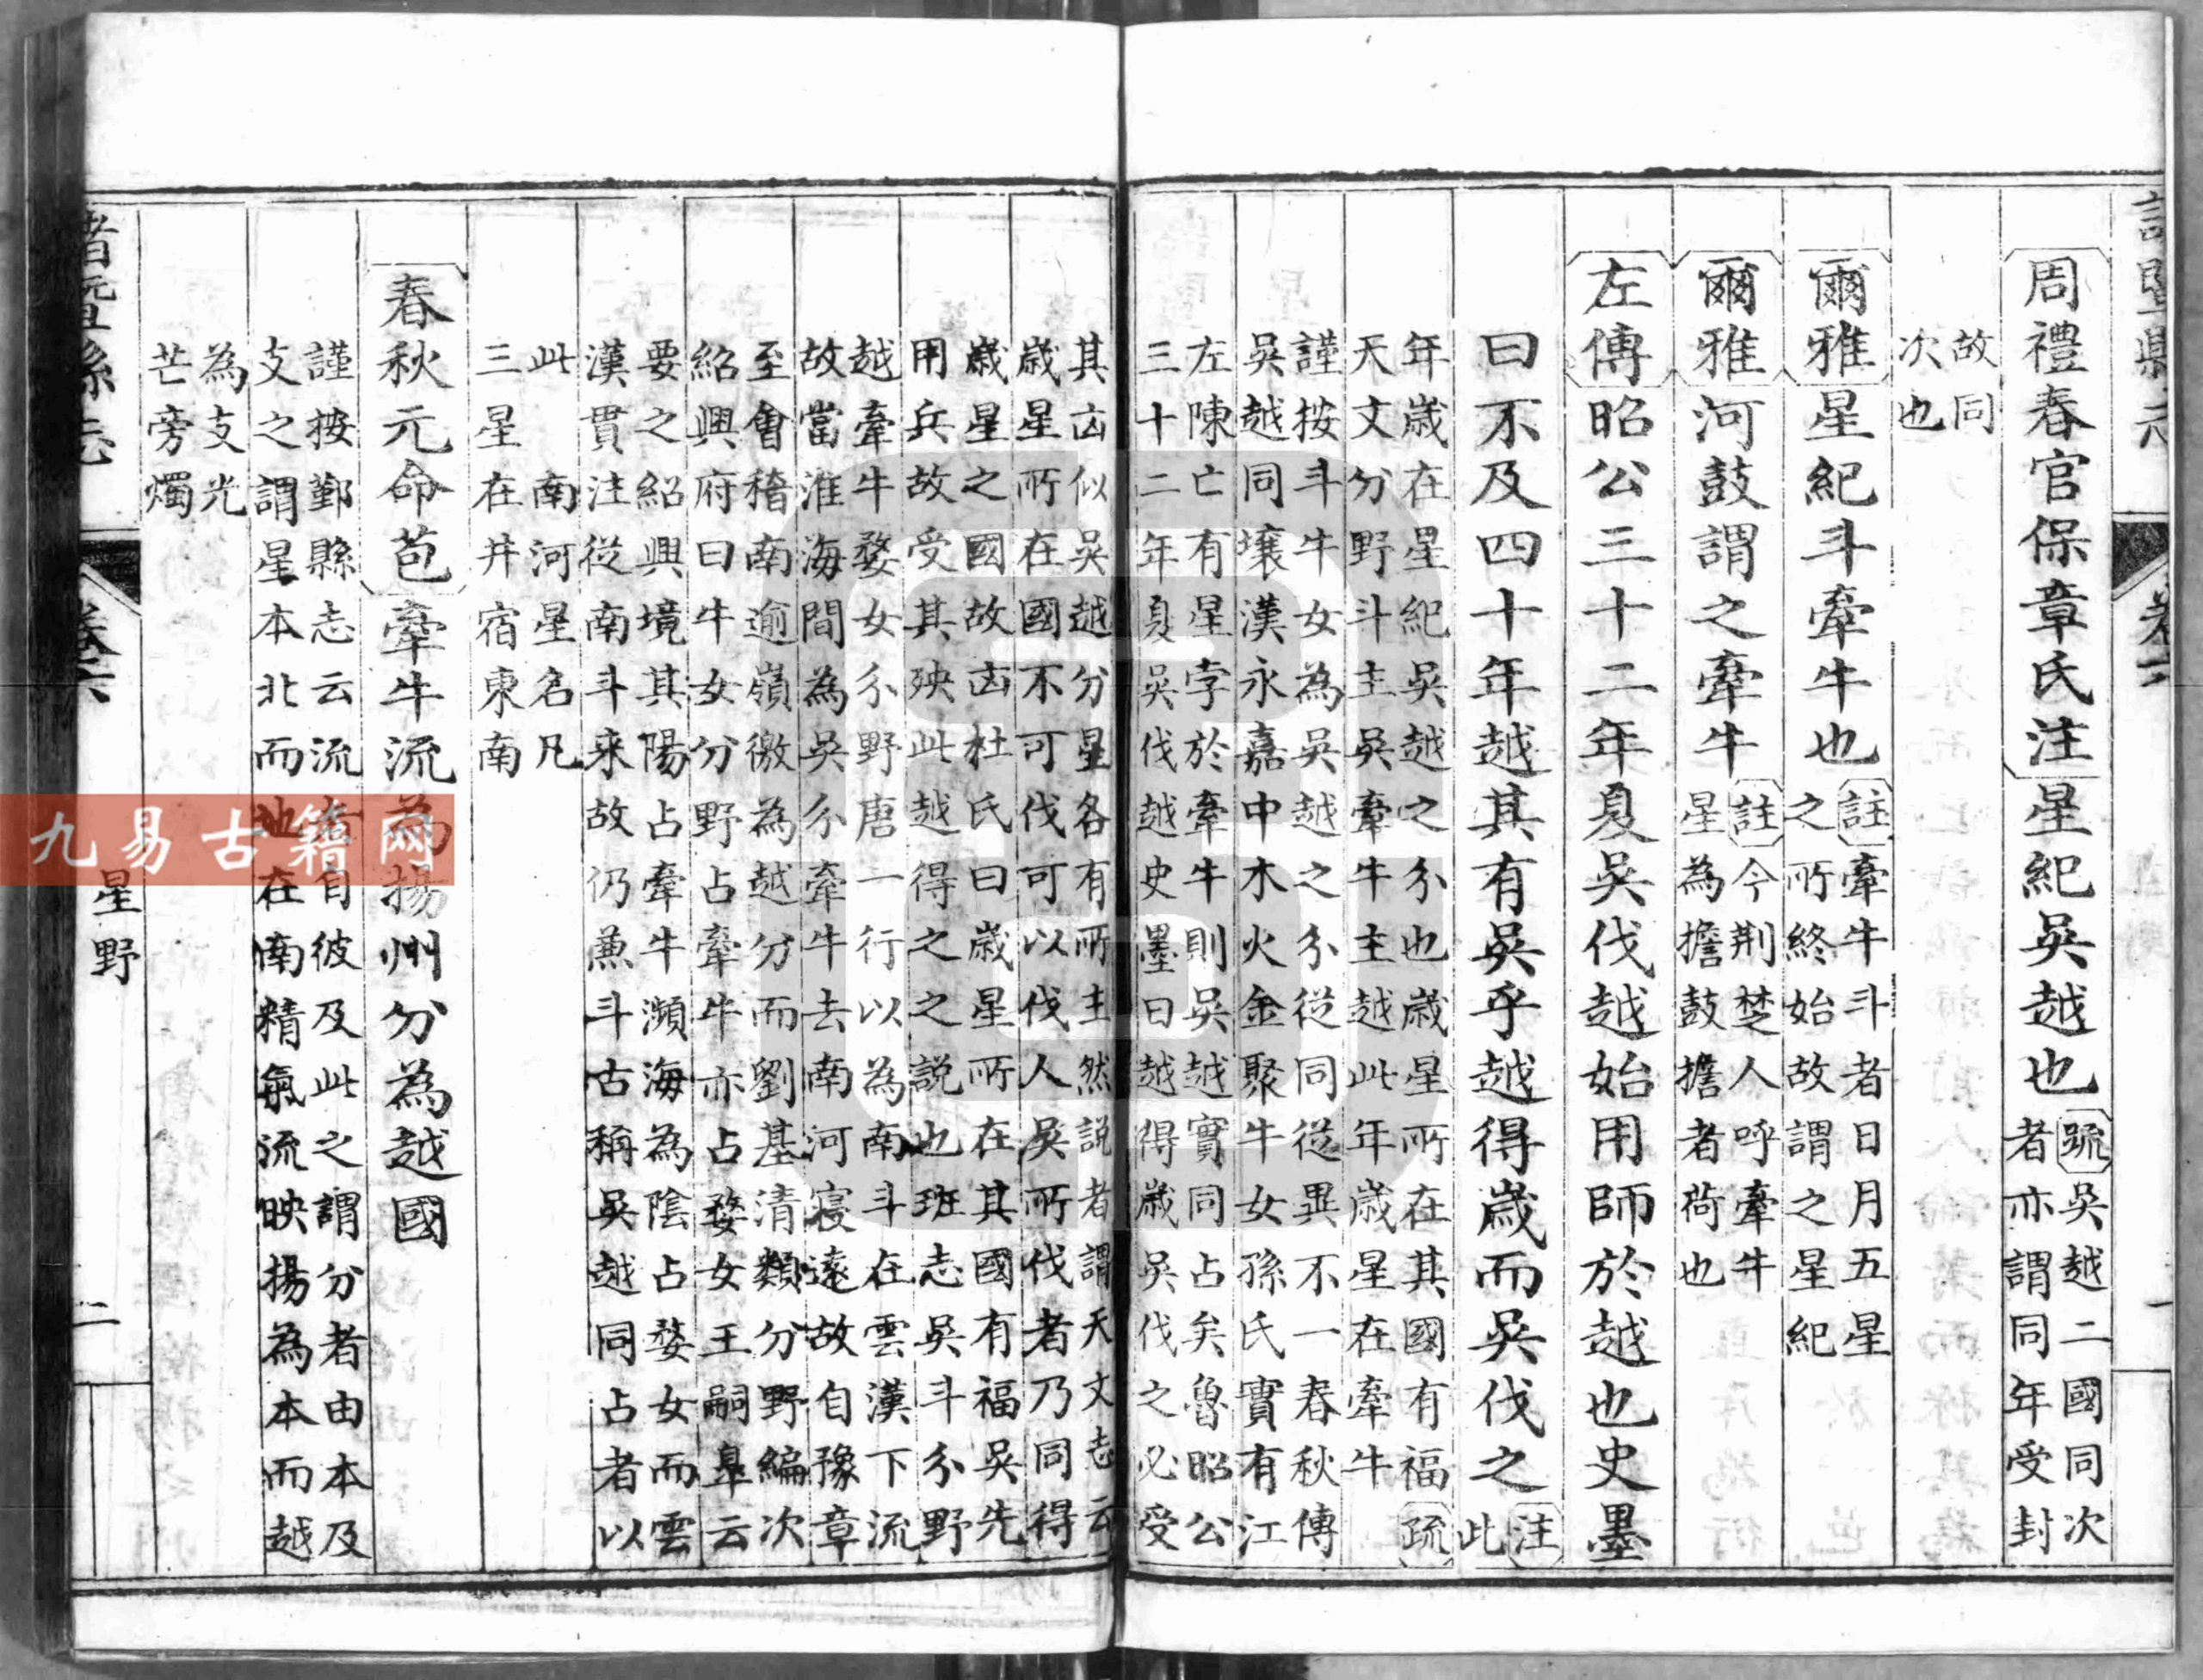 周禮春官保章氏注星紀吳越也
疏吳越二國同次
者亦謂同年受封
故同
次也
爾雅星紀斗牽牛也
註牽牛斗者日月五星
之所終始故謂之星紀
爾雅河鼓謂之牽牛
註今荆楚人呼牽牛
星為擔鼓擔者荷也
左傳昭公三十二年夏吳伐越始用師於越也史墨
曰不及四十年越其有吳乎越得歲而吳伐之
注
此
年歲在星紀吳越之分也歲星所在其國有福疏
天文分野斗主吳牽牛主越此年歲星在牽牛
謹按斗牛女為吳越之分從同從異不一春秋傳
吳越同壤漢永嘉中木火金聚牛女孫氏實有江
左陳亡有星孛於牽牛則吳越實同占矣魯昭公
三十二年夏吳伐越史墨曰越得歲吳伐之必受
其凶似吳越分星各有所主然說者謂天文志云
歲星所在國不可伐可以伐人吳所伐者乃同得
歲星之國故凶杜氏曰歲星所在其國有福吳先
用兵故受其殃此越得之之說也班志吳斗分野
越牽牛婺女分野唐一行以為南斗在雲漢下流
故當淮海間為吳分牽牛去南河寖遠故自豫章
至會稽南逾嶺徼為越分而劉基清類分野編次
紹興府曰牛女分野占牽牛亦占婺女王嗣臯云
要之紹興境其陽占牽牛瀕海為陰占婺女而雲
漢貫注從南斗来故仍兼斗古稱吳越同占者以
此　南河星名凡
三星在井宿東南
春秋元命苞牽牛流為揚州分為越國
謹按鄞縣志云流者自彼及此之謂分者由本及
支之謂星本北而地在南精氣流映揚為本而越
為支光
芒旁燭
諸暨縣志
卷六
星野
二
九易古籍网